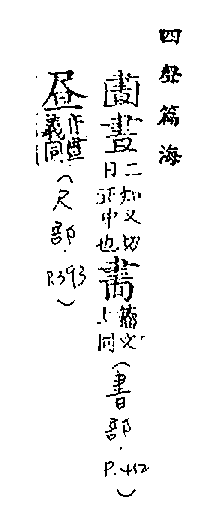 四聲篇海
晝二知又切日正中也籀文上同(書部.P.452)
昼作晝義同(尺部.P.393)